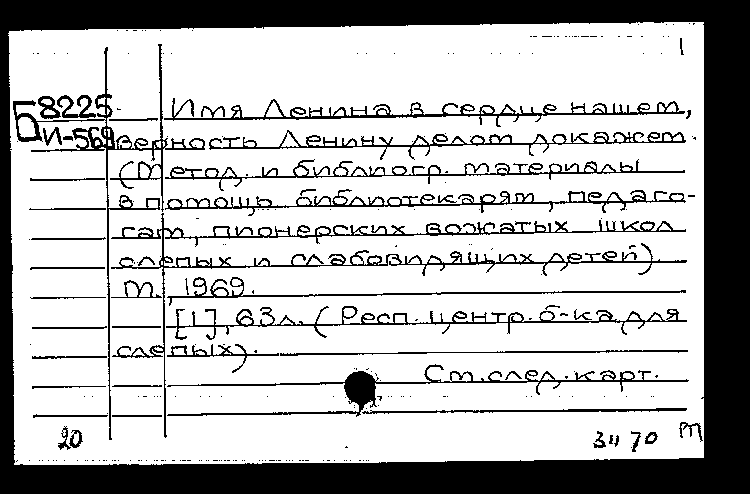 1
Б 8225 Имя Ленина в сердце нашем,
И-569 верность Ленину делом докажем.
(Метод. и библиогр. материалы
в помощь библиотекарям, педаго-
гам, пионерских вожатых школ
слепых и слабовидящих детей).
М., 1969.
[1], 63л. (Респ. центр. б-ка для
слепых).
См. след. карт.
20 3 II 70 М